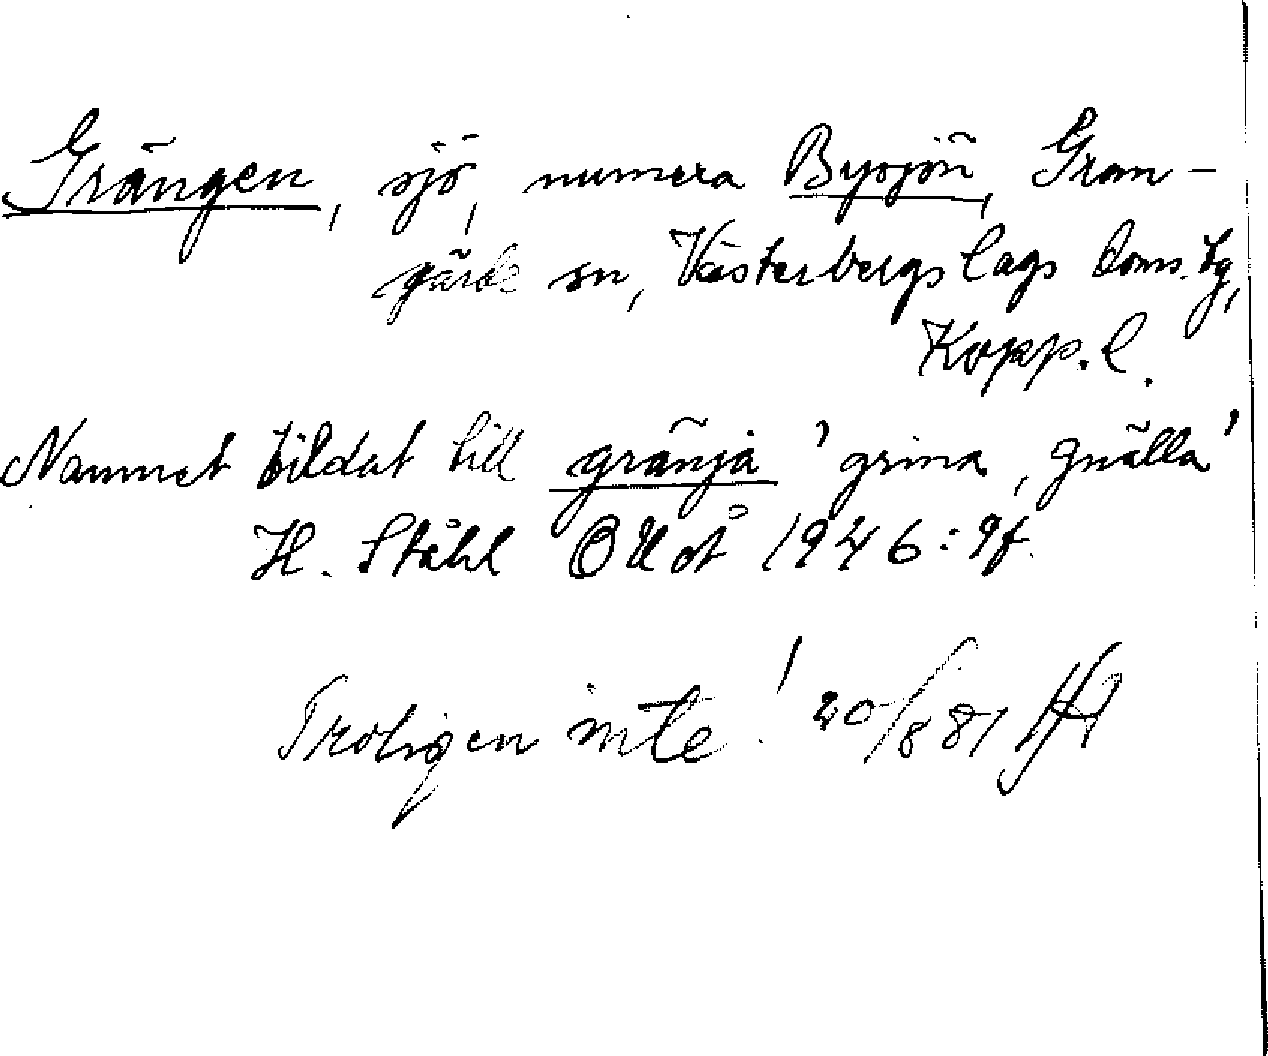 Grängen, sjö, numera Bysjön, Gran-
gärde sn, Västerbergslags doms.tg,
Kopp.l.
Namnet bildat till gränja 'grina, gnälla'
H. Ståhl 1946:9f.
Troligen inte! 20/8 81